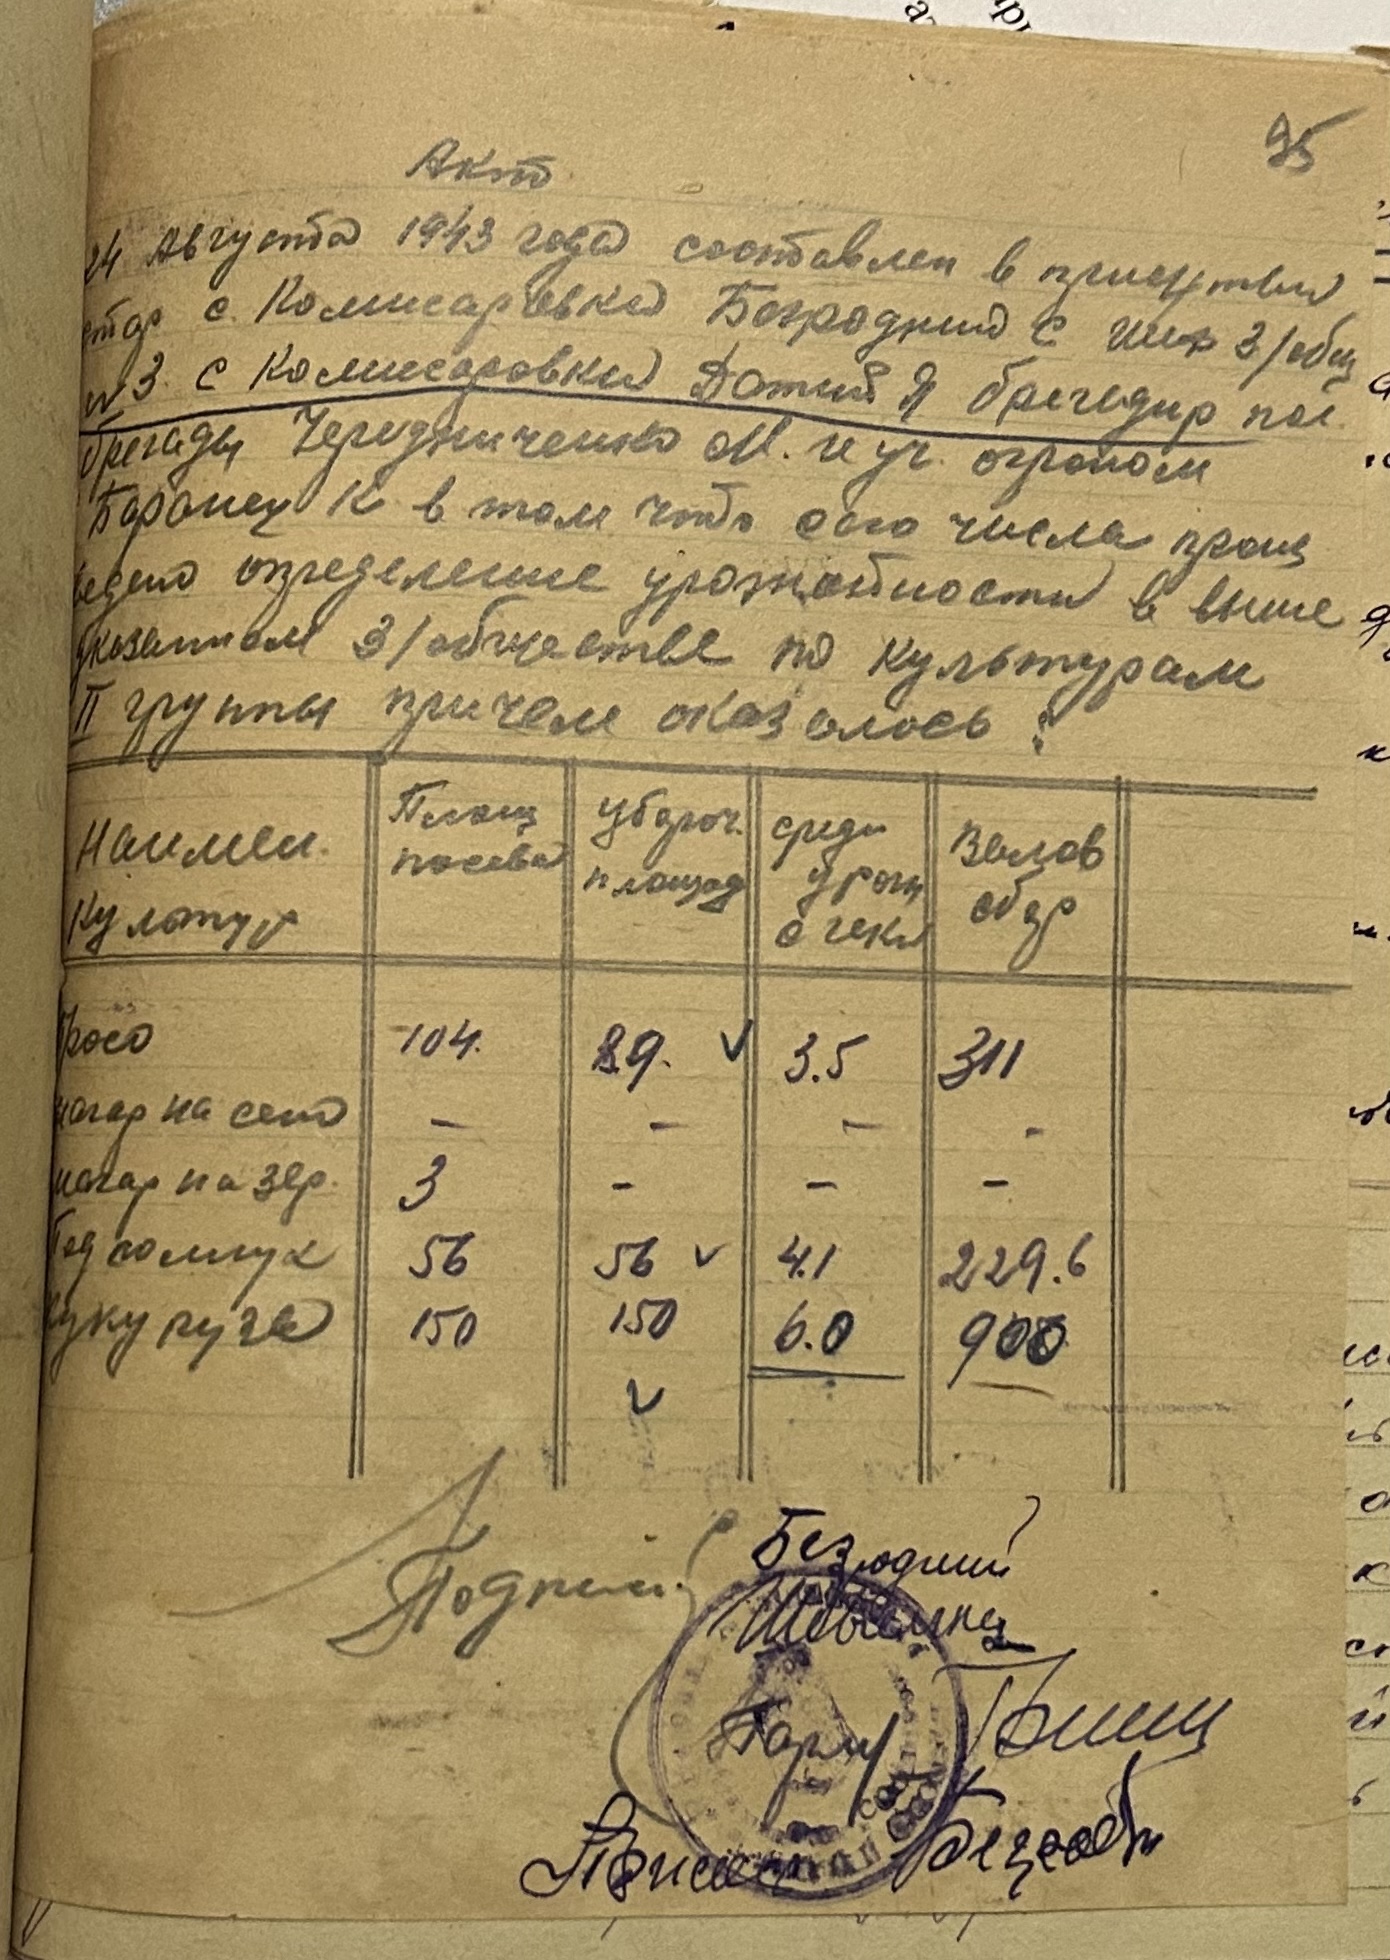 95
Акт
24 Августа 1943 года составлен в присутствии
стар с. Комисаровки Безродний С
N3 с Комисаровки бригадир пол.
бригады Чередниченко М. и уч. огроном
Баранец К в том что сего числа произ
ведено определение урожайности в выше
указанном З/обществе по культурам
II групы причем оказалось:
Наимен. культур
Площ посева
Уборочн. площад
средн урож с гект
Валов сбор
Просо 104. 89. 3.5 311
могар на сено - - - -
могар на зер. 3 - - -
Подсолнух 56 56 4.1 229.6
кукуруза 150 150 6.0 900
Подписи
Безродний